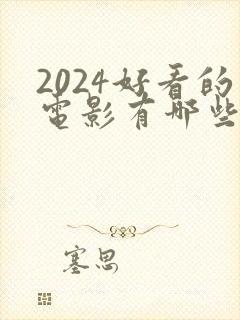 2024好看的
电影有哪些
塞思